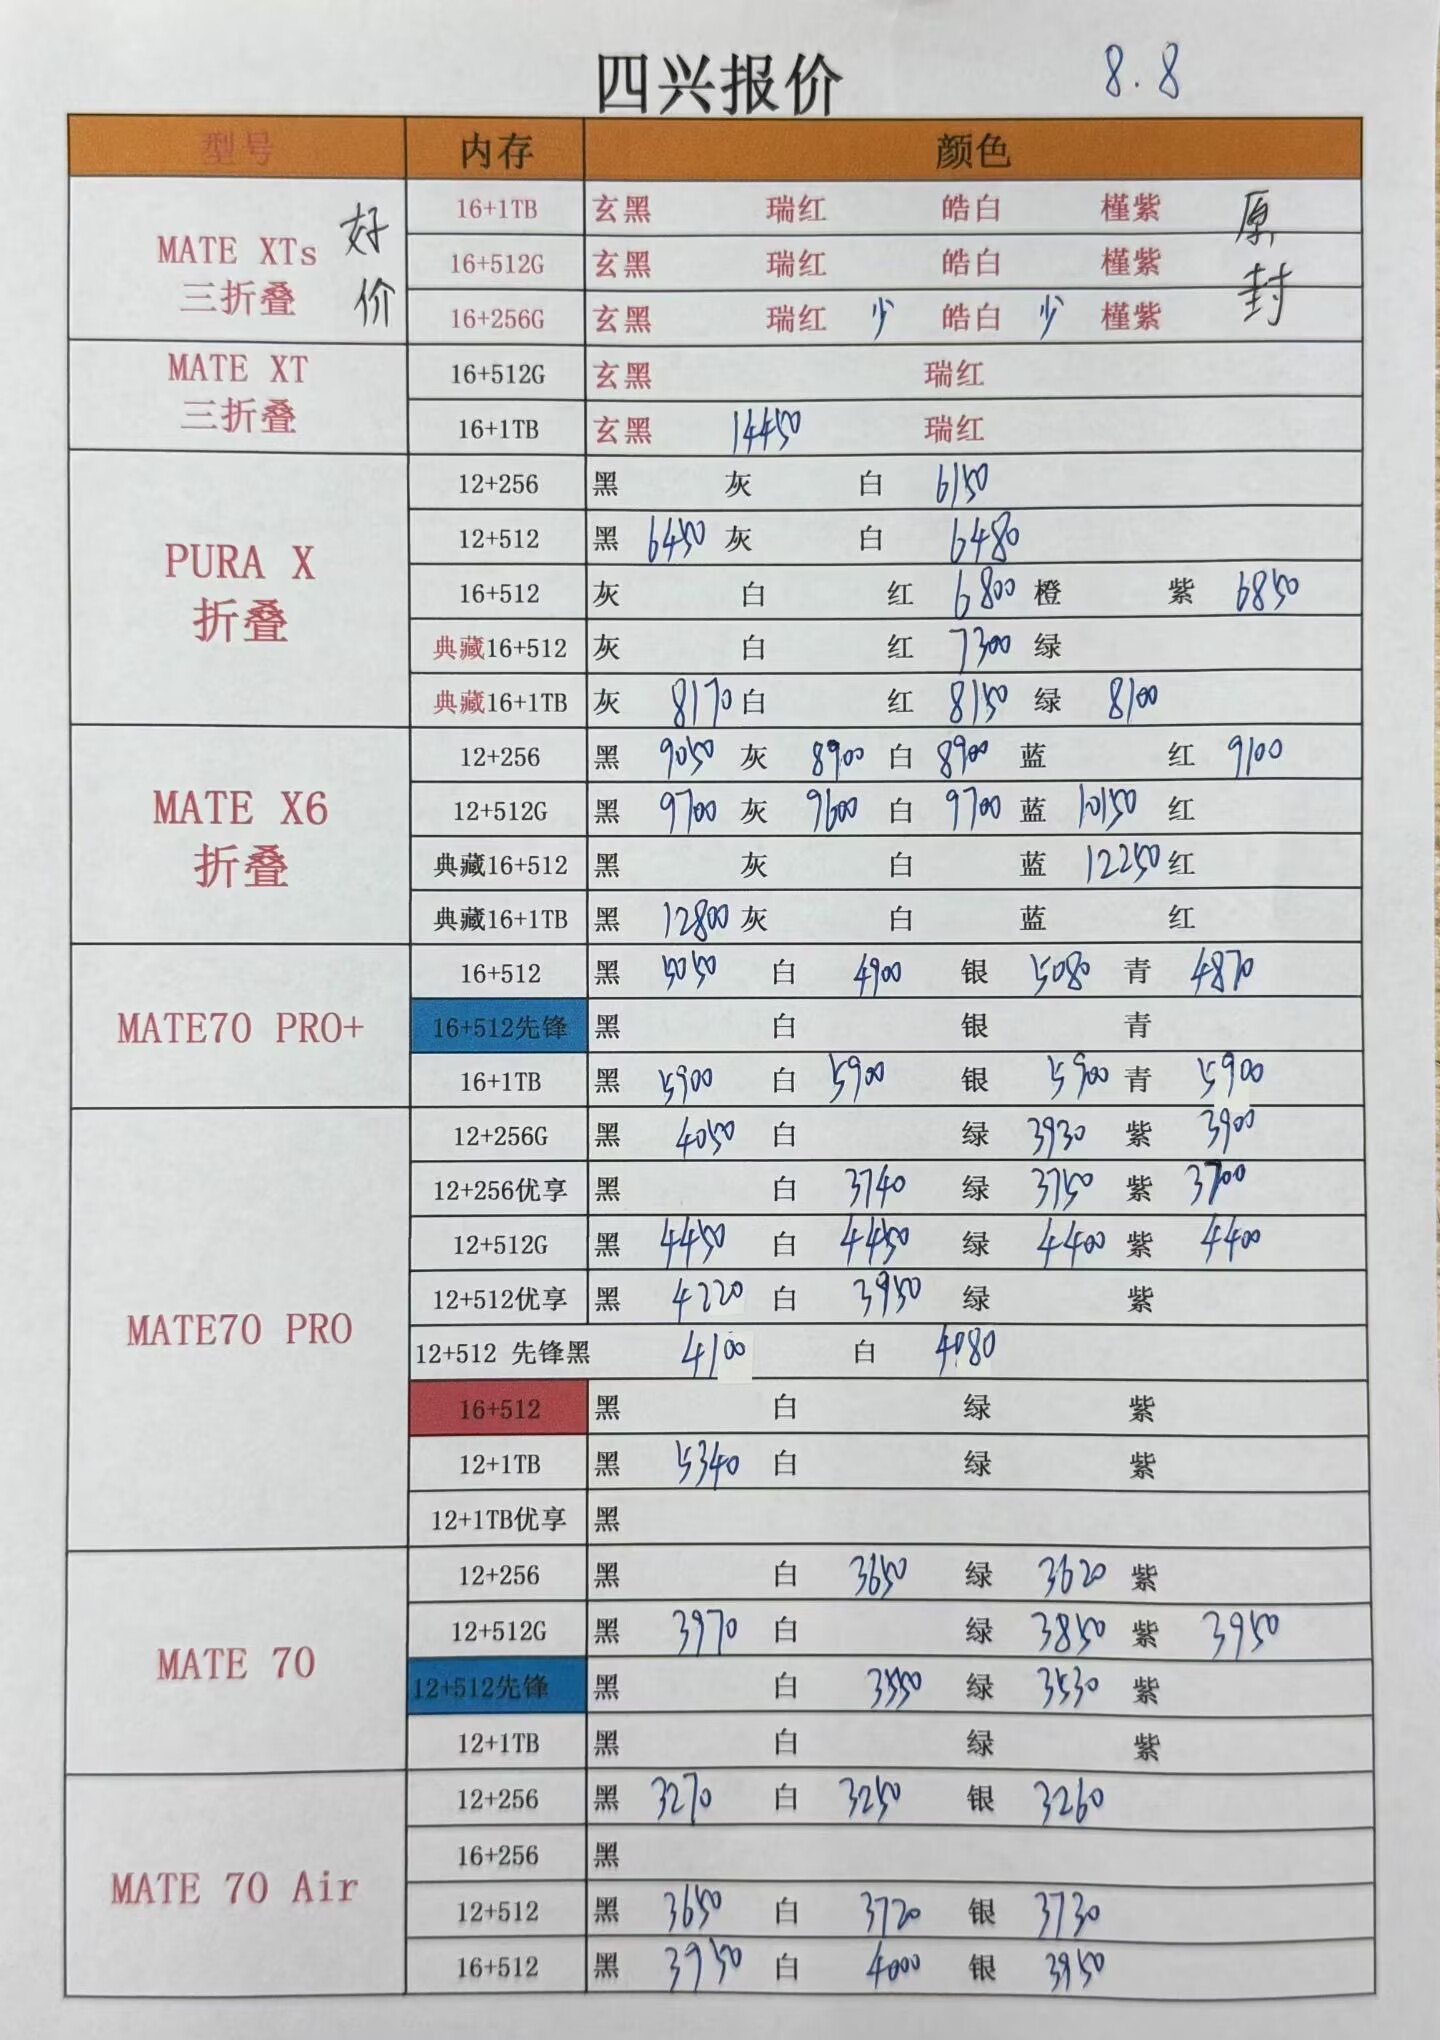 四兴报价 8.8
型号 内存 颜色
MATE XTs 三折叠 好价 原封
16+1TB 玄黑 瑞红 皓白 槿紫
16+512G 玄黑 瑞红 皓白 槿紫
16+256G 玄黑 瑞红 少 皓白 少 槿紫
MATE XT 三折叠
16+512G 玄黑 瑞红
16+1TB 玄黑 14450 瑞红
PURA X 折叠
12+256 黑 灰 白 6150
12+512 黑 6450 灰 白 6480
16+512 灰 白 红 6800 橙 紫 6850
典藏16+512 灰 白 红 7300 绿
典藏16+1TB 灰 8170 白 红 8150 绿 8100
MATE X6 折叠
12+256 黑 9050 灰 8900 白 8900 蓝 红 9100
12+512G 黑 9700 灰 9600 白 9700 蓝 10150 红
典藏16+512 黑 灰 白 蓝 12250 红
典藏16+1TB 黑 12800 灰 白 蓝 红
MATE70 PRO+
16+512 黑 5050 白 4900 银 5080 青 4870
16+512先锋 黑 白 银 青
16+1TB 黑 5900 白 5900 银 5900 青 5900
MATE70 PRO
12+256G 黑 4050 白 绿 3930 紫 3900
12+256优享 黑 白 3740 绿 3750 紫 3700
12+512G 黑 4450 白 4450 绿 4400 紫 4400
12+512优享 黑 4220 白 3950 绿 紫
12+512 先锋黑 4100 白 4080
16+512 黑 白 绿 紫
12+1TB 黑 5340 白 绿 紫
12+1TB优享 黑
MATE 70
12+256 黑 白 3650 绿 3620 紫
12+512G 黑 3970 白 绿 3850 紫 3950
12+512先锋 黑 白 3550 绿 3530 紫
12+1TB 黑 白 绿 紫
MATE 70 Air
12+256 黑 3270 白 3250 银 3260
16+256 黑
12+512 黑 3650 白 3720 银 3730
16+512 黑 3950 白 4000 银 3950